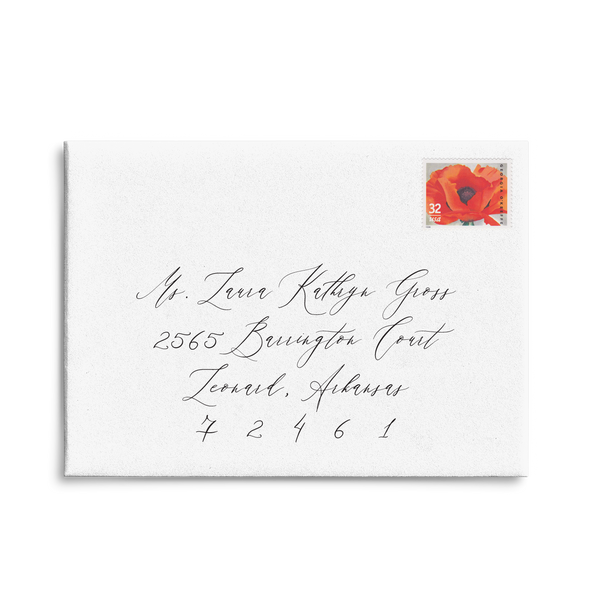 32
USA
GEORGIA O'KEEFFE
Ms. Laura Kathryn Gross
2565 Barrington Court
Leonard, Arkansas
7 2 4 6 1